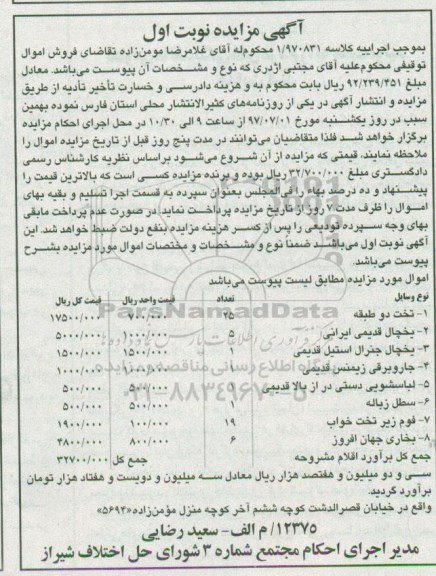 آگهی مزایده نوبت اول
بموجب اجراییه کلاسه ۱/۹۷۰۸۳۱ محکوم‌له آقای غلامرضا مومن‌زاده تقاضای فروش اموال
توقیفی محکوم‌علیه آقای مجتبی اژدری که نوع و مشخصات آن پیوست می‌باشد. معادل
مبلغ ۹۲/۲۳۹/۴۵۱ ریال بابت محکوم به و هزینه دادرسی و خسارت تأخیر تأدیه از طریق
مزایده و انتشار آگهی در یکی از روزنامه‌های کثیرالانتشار محلی استان فارس نموده بهمین
سبب در روز یکشنبه مورخ ۹۷/۰۷/۰۱ از ساعت ۹ الی ۱۰/۳۰ در محل اجرای احکام مزایده
برگزار خواهد شد فلذا متقاضیان می‌توانند در مدت پنج روز قبل از تاریخ مزایده اموال را
ملاحظه نمایند، قیمتی که مزایده از آن شروع می‌شود براساس نظریه کارشناس رسمی
دادگستری مبلغ ۳۲/۷۰۰/۰۰۰ ریال بوده و برنده مزایده کسی است که بالاترین قیمت را
پیشنهاد و ده درصد بهاء را فی‌المجلس بعنوان سپرده به قسمت اجرا تسلیم و بقیه بهای
اموال را ظرف مدت ۷ روز از تاریخ مزایده پرداخت نماید. در صورت عدم پرداخت مابقی
بهای وجه سپرده تودیعی را پس از کسر هزینه مزایده بنفع دولت ضبط خواهد شد. این
آگهی نوبت اول می‌باشد ضمناً نوع و مشخصات و مختصات اموال مورد مزایده بشرح
پیوست می‌باشد.
اموال مورد مزایده مطابق لیست پیوست می‌باشد
نوع وسایل تعداد قیمت واحد ریال قیمت کل ریال
۱- تخت دو طبقه ۲۵ ۷۰۰/۰۰۰ ۱۷۵۰۰/۰۰۰
۲- یخچال قدیمی ایرانی ۵ ۱۰۰۰/۰۰۰ ۵۰۰۰/۰۰۰
۳- یخچال جنرال استیل قدیمی ۱ ۱۵۰۰/۰۰۰ ۱۵۰۰/۰۰۰
۴- جاروبرقی زیمنس قدیمی ۱۰۰۰/۰۰۰
۵- لباسشویی دستی در از بالا قدیمی ۵۰۰/۰۰۰ ۵۰۰/۰۰۰
۶- سطل زباله ۱ ۵۰۰/۰۰۰ ۵۰۰/۰۰۰
۷- فوم زیر تخت خواب ۱۹ ۱۰۰/۰۰۰ ۱۹۰۰/۰۰۰
۸- بخاری جهان افروز ۶ ۸۰۰/۰۰۰ ۴۸۰۰/۰۰۰
جمع کل برآورد اقلام مشروحه جمع کل ۳۲۷۰۰/۰۰۰
سی و دو میلیون و هفتصد هزار ریال معادل سه میلیون و دویست و هفتاد هزار تومان
برآورد گردید.
واقع در خیابان قصرالدشت کوچه ششم آخر کوچه منزل مؤمن‌زاده «۵۶۹۴»
۱۲۳۷۵/ م الف - سعید رضایی
مدیر اجرای احکام مجتمع شماره ۳ شورای حل اختلاف شیراز
ParsNamadData
پایگاه اطلاع رسانی مناقصه و مزایده
۰۲۱-۸۸۳۴۹۶۷۰-۵